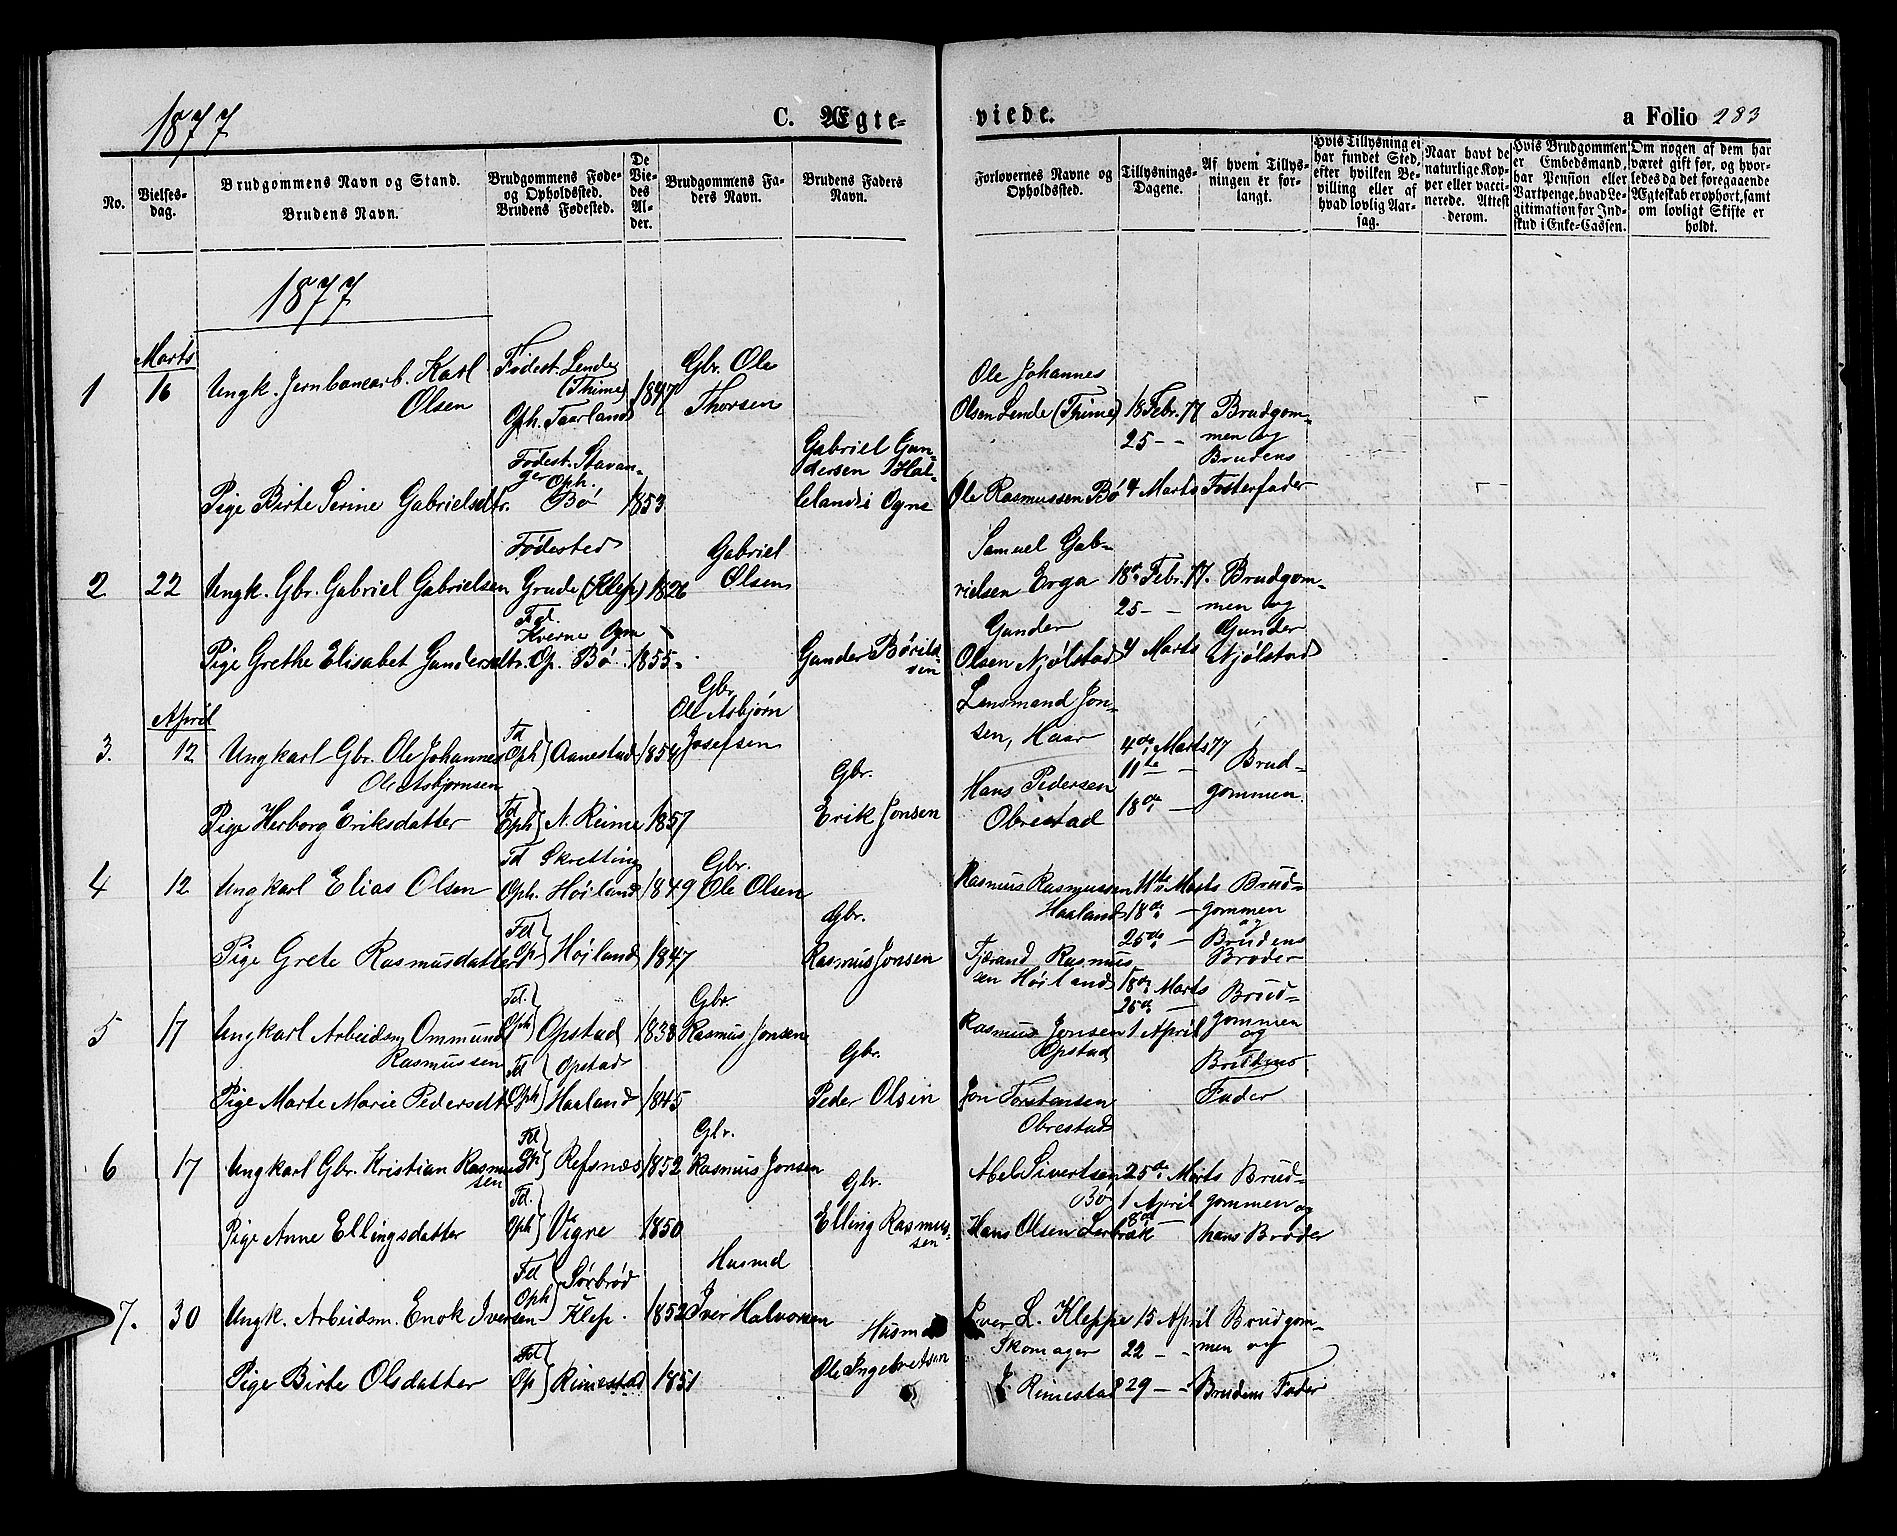 1877
C. Ægte-
viede.
a Folio 283
No.
Vielses-
dag.
Brudgommens Navn og Stand.
Brudens Navn.
Brudgommens Føde-
og Opholdssted.
Brudens Fødested.
De
Vie-
des
Al-
der.
Brudgommens Fa-
ders Navn.
Brudens Faders
Navn.
Forlovernes Navne og
Opholdssted.
Tillysnings-
Dagene.
Af hvem Tillys-
ningen er for-
langt.
Hvis Tillysning ei
har fundet Sted,
efter hvilken Be-
villing eller af
hvad lovlig Aar-
sag.
Naar havt de
naturlige Kop-
per eller vacci-
nerede. Attest
derom.
Hvis Brudgommen
er Embedsmand,
har Pension eller
Vartpenge, hvad Le-
gitimation for Ind-
skud i Enke-Cassen.
Om nogen af dem har
været gift før, og hvor-
ledes da det foregaaende
Ægteskab er ophørt, samt
om lovligt Skifte er
holdt.
1877
Marts
1 16 Ungk. Jernbanearb. Karl
Olsen
Fødest. Lende
(Thime)
Oph. Taarland
1847
Gbr. Ole
Thorsen
Ole Johannes
Olsen Lende (Thime)
18 Febr. 77
25 - -
Brudgom-
men og
Brudens
Pige Birte Serine Gabrielsdtr.
Fødest. Stavan-
ger Oph.
Bø
1853
Gabriel Gun-
dersen Hal-
leland i Ogne
Ole Rasmussen Bø
4 Marts
Fosterfader
2 22 Ungk. Gbr. Gabriel Gabrielsen
Fødested
Grude (Klep)
1826
Gabriel
Olsen
Samuel Gab-
rielsen Erga
18de Febr. 77.
25 - -
Brudgom-
men og
Gunder
Njølstad
Pige Grethe Elisabet Gundersdtr.
Fd.
Kverne Ogn
Op. Bø
1855
Gunder Børild-
sen
Gunder
Olsen Njølstad
4 Marts
April
3. 12 Ungkarl Gbr. Ole Johannes
Ole Asbjørnsen
Fd
Oph} Aanestad
1854
Gbr.
Ole Asbjørn
Josefsen
Lensmand Jon-
sen, Haar
4de Marts 77
11te -
18de -
Brud-
gommen.
Pige Herborg Eriksdatter
Fd
Oph} N. Reime
1857
Gbr.
Erik Jonsen
Hans Pedersen
Obrestad
4 12 Ungkarl Elias Olsen
Fd Skretting
Oph. Høiland
1849
Gbr.
Ole Olsen
Rasmus Rasmussen
Haaland
11te Marts
18de -
25de -
Brud-
gommen
og
Brudens
Broder
Pige Grete Rasmusdatter
Fd
Op} Høiland
1847
Gbr.
Rasmus Jonsen
Tjerand Rasmus
sen Høiland
5 17 Ungkarl Arbeidsm Ommund
Rasmussen
Fd.
Oph} Opstad
1838
Gbr.
Rasmus Jonsen
Rasmus Jonsen
Opstad
18de Marts
25de -
1 April
Brud-
gommen
og
Brudens
Fader
Pige Marte Marie Pedersdtr
Fd Opstad
Oph} Haaland
1845
Gbr.
Peder Olsen
Jon Torstensen
Obrestad
6 17 Ungkarl Gbr. Kristian Rasmus
sen
Fd
Oph} Refsnæs
1852
Gbr.
Rasmus Jonsen
Abel Sivertsen
Bø
25de Marts
1 April
8de -
Brud-
gommen og
hans Broder
Pige Anne Ellingsdatter
Fd.
Oph} Vigre
1850
Gbr.
Elling Rasmus-
sen
Hans Olsen Lerbrak
7. 30 Ungk. Arbeidsm. Enok Iversen
Fd
Oph} Sørbrød
Klep.
1852
Husmd
Iver Halvorsen
Iver L. Kleppe
Skomager
15 April
22 - -
29 - -
Brudgom-
men og
Brudens Fader
Pige Birte Olsdatter
Fd
Op} Rimestad
1851
Husmd
Ole Ingebretsen
Rimestad